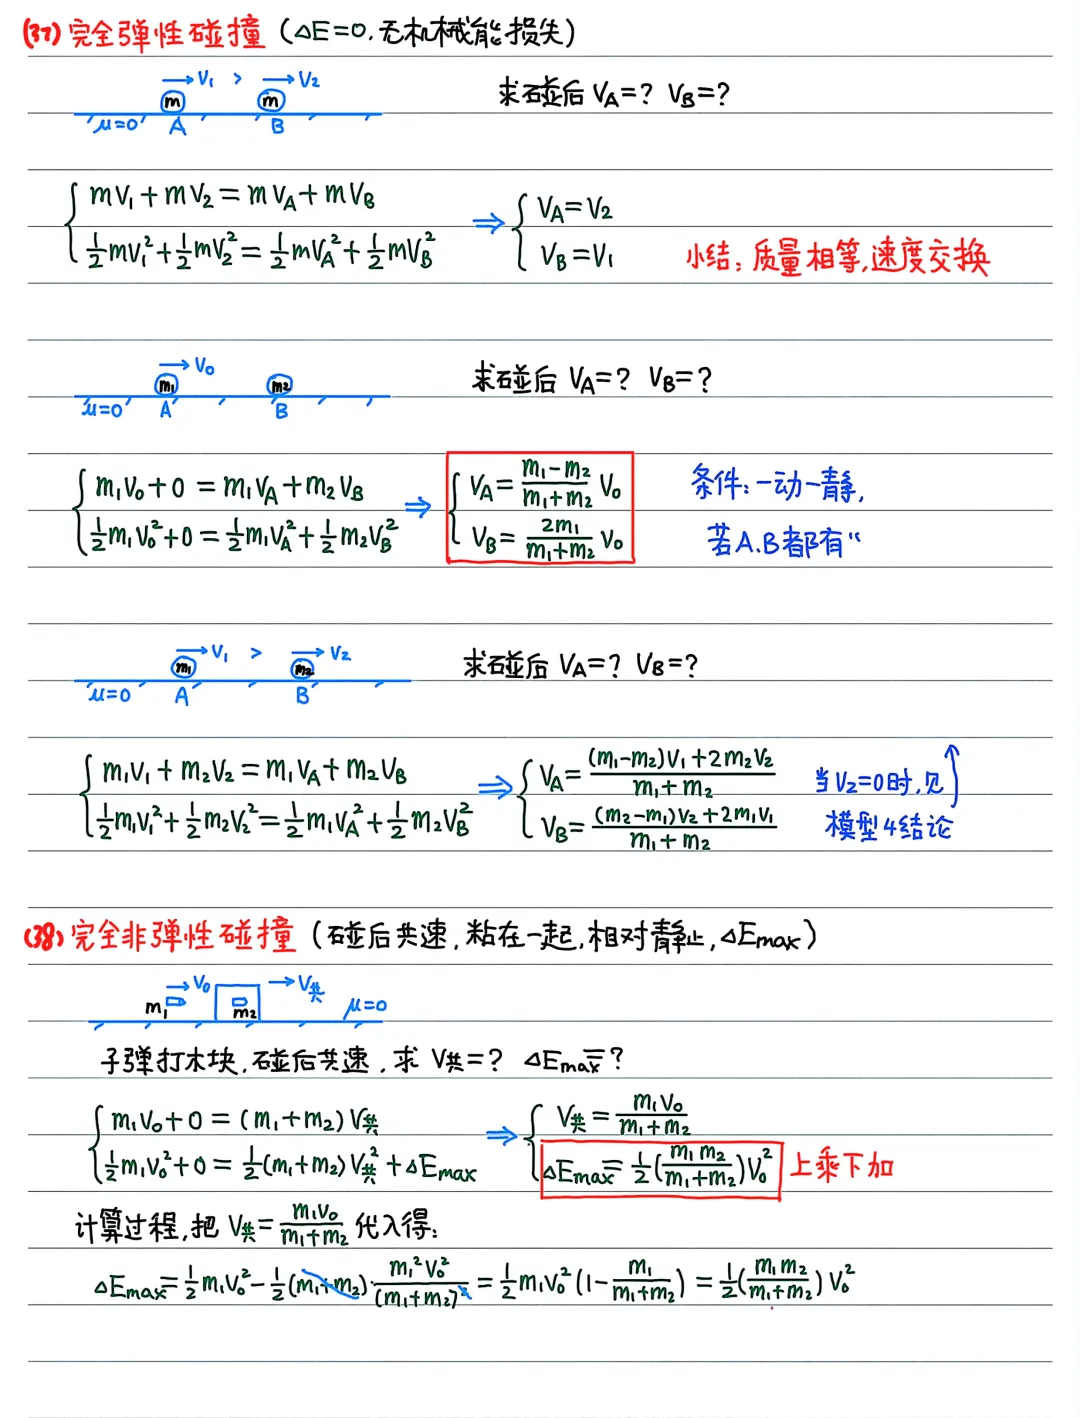 (37) 完全弹性碰撞 (△E=0.无机械能损失)
→V₁ > →V₂
m m
μ=0 A B
求碰后 VA=? VB=?
{ mV₁+mV₂=mVA+mVB
½mV₁²+½mV₂²=½mVA²+½mVB²
⇒ { VA=V₂
VB=V₁
小结:质量相等,速度交换
→V₀
m₁ m₂
μ=0 A B
求碰后 VA=? VB=?
{ m₁V₀+0=m₁VA+m₂VB
½m₁V₀²+0=½m₁VA²+½m₂VB²
⇒ { VA=(m₁-m₂)/(m₁+m₂) V₀
VB=2m₁/(m₁+m₂) V₀
条件:一动一静,
若A.B都有“
→V₁ > →V₂
m₁ m₂
μ=0 A B
求碰后 VA=? VB=?
{ m₁V₁+m₂V₂=m₁VA+m₂VB
½m₁V₁²+½m₂V₂²=½m₁VA²+½m₂VB²
⇒ { VA=((m₁-m₂)V₁+2m₂V₂)/(m₁+m₂)
VB=((m₂-m₁)V₂+2m₁V₁)/(m₁+m₂)
当V₂=0时,见
模型4结论
(38) 完全非弹性碰撞 (碰后共速,粘在一起,相对静止,△Emax)
→V₀ →V共
m₁ m₂ μ=0
子弹打木块,碰后共速,求 V共=? △Emax=?
{ m₁V₀+0=(m₁+m₂)V共
½m₁V₀²+0=½(m₁+m₂)V共²+△Emax
⇒ { V共=m₁V₀/(m₁+m₂)
△Emax=½(m₁m₂/(m₁+m₂))V₀² 上乘下加
计算过程,把 V共=m₁V₀/(m₁+m₂) 代入得:
△Emax=½m₁V₀²-½(m₁+m₂)·m₁²V₀²/(m₁+m₂)²=½m₁V₀²(1-m₁/(m₁+m₂))=½(m₁m₂/(m₁+m₂))V₀²